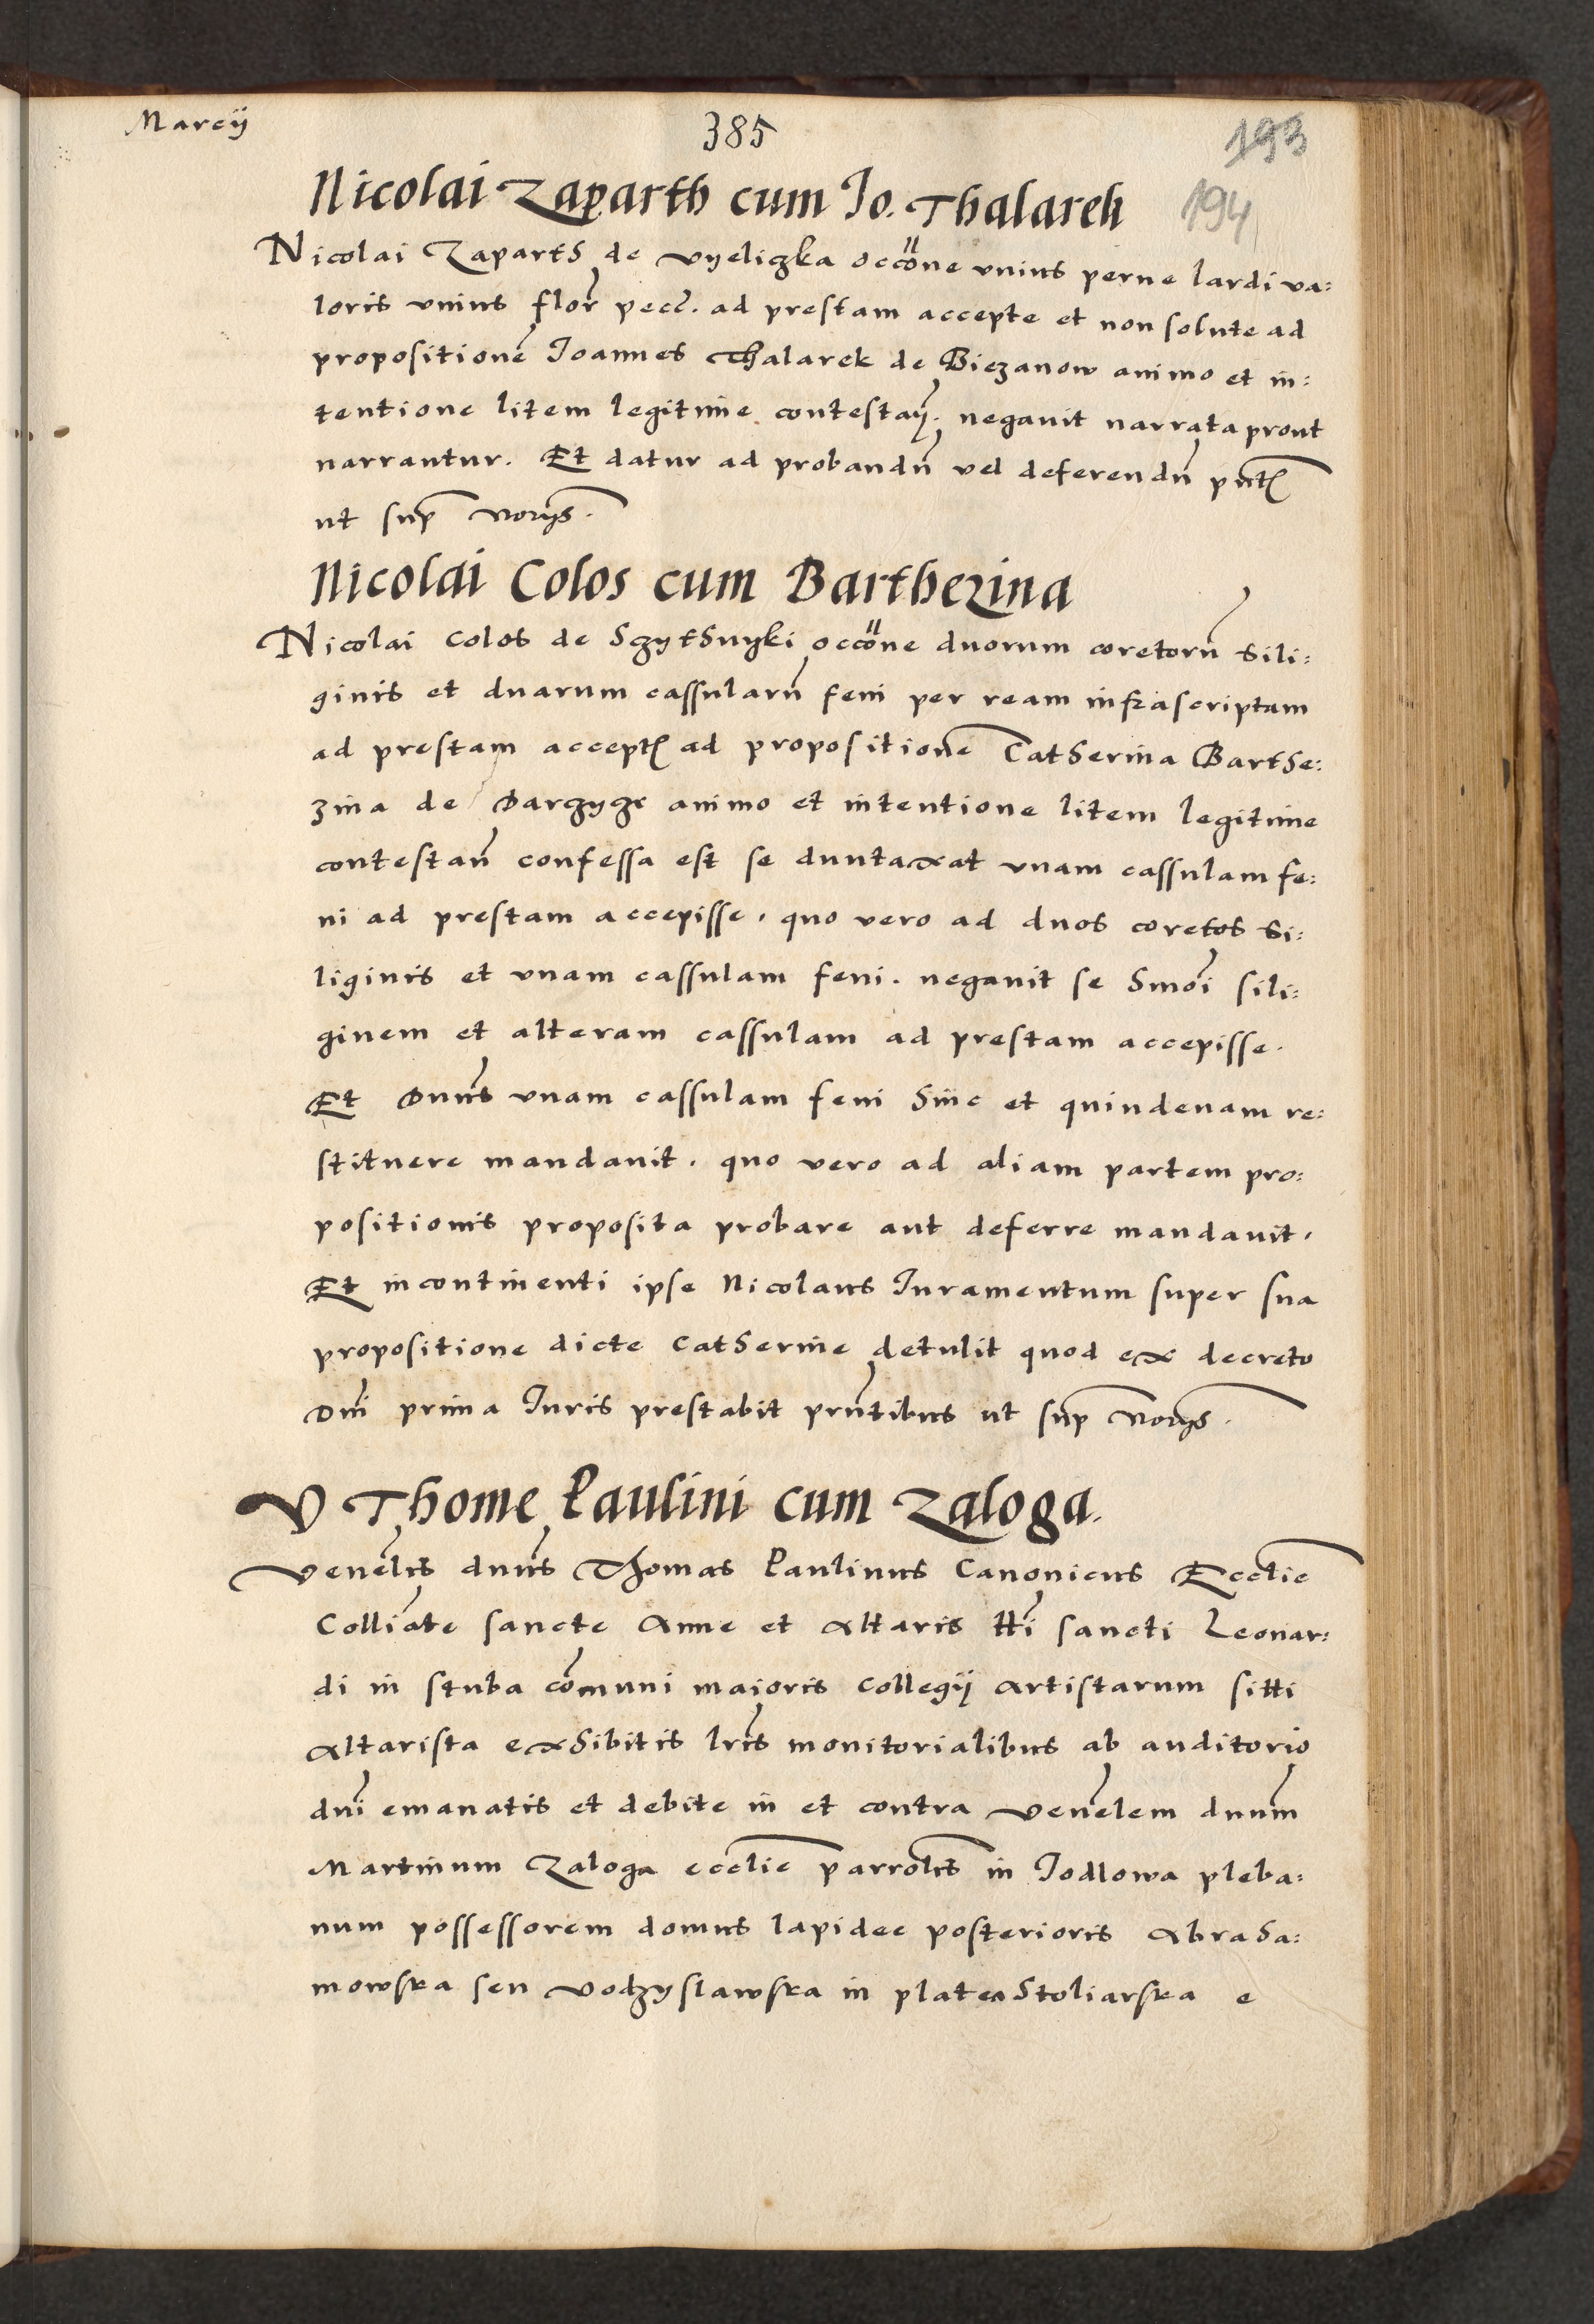 Marcÿ
385
193
194
Nicolai Zaparth cum Jo. Thalarek
Nicolai Zaparth de vyeliczka occōne vnius perne lardi va:
loris vnius flor̄ pecc̄. ad prestam accepte et non solute ad
propositionē Joannes Thalarek de Biezanow animo et in:
tentione litem legitime contestaṇ̄. negauit narrata prout
narrantur. Et datur ad probandū vel deferendū pn̄t
ut sup̄ norÿs.
Nicolai Colos cum Barthezina
Nicolai Colos de Sczythnyki occōne duorum coretorū sili:
ginis et duarum cassularū feni per ream infrascriptam
ad prestam accept ad propositionē Catherina Barthe:
zina de Dargyge animo et intentione litem legitime
contestan̄ confessa est se duntaxat vnam cassulam fe:
ni ad prestam accepisse, quo vero ad duos coretos si:
liginis et vnam cassulam feni. negauit se hmōi sili:
ginem et alteram cassulam ad prestam accepisse.
Et Dn̄us vnam cassulam feni hinc et quindenam re:
stituere mandauit. quo vero ad aliam partem pro:
positionis proposita probare aut deferre mandauit.
Et incontinenti ipse Nicolaus Iuramentum super sua
propositione dicte Catherine detulit quod ex decreto
Dn̄i prima Iuris prestabit prn̄tibus ut sup̄ norÿs.
V Thome Paulini cum Zaloga.
Venēlis dn̄us Thomas Paulinus Canonicus Eccl̄ie
Colliāte sancte Anne et Altaris tt̄i sancti Leonar:
di in stuba cōmuni maioris collegÿ Artistarum sitti
Altarista exhibitis lr̄is monitorialibus ab auditorio
dn̄i emanatis et debite in et contra venēlem dnūm
Martinum Zaloga eccl̄ie parrolīs in Jodlowa pleba:
num possessorem domus lapidee posterioris Abraha:
mowska seu vodzyslawska in platea Stoliarska e